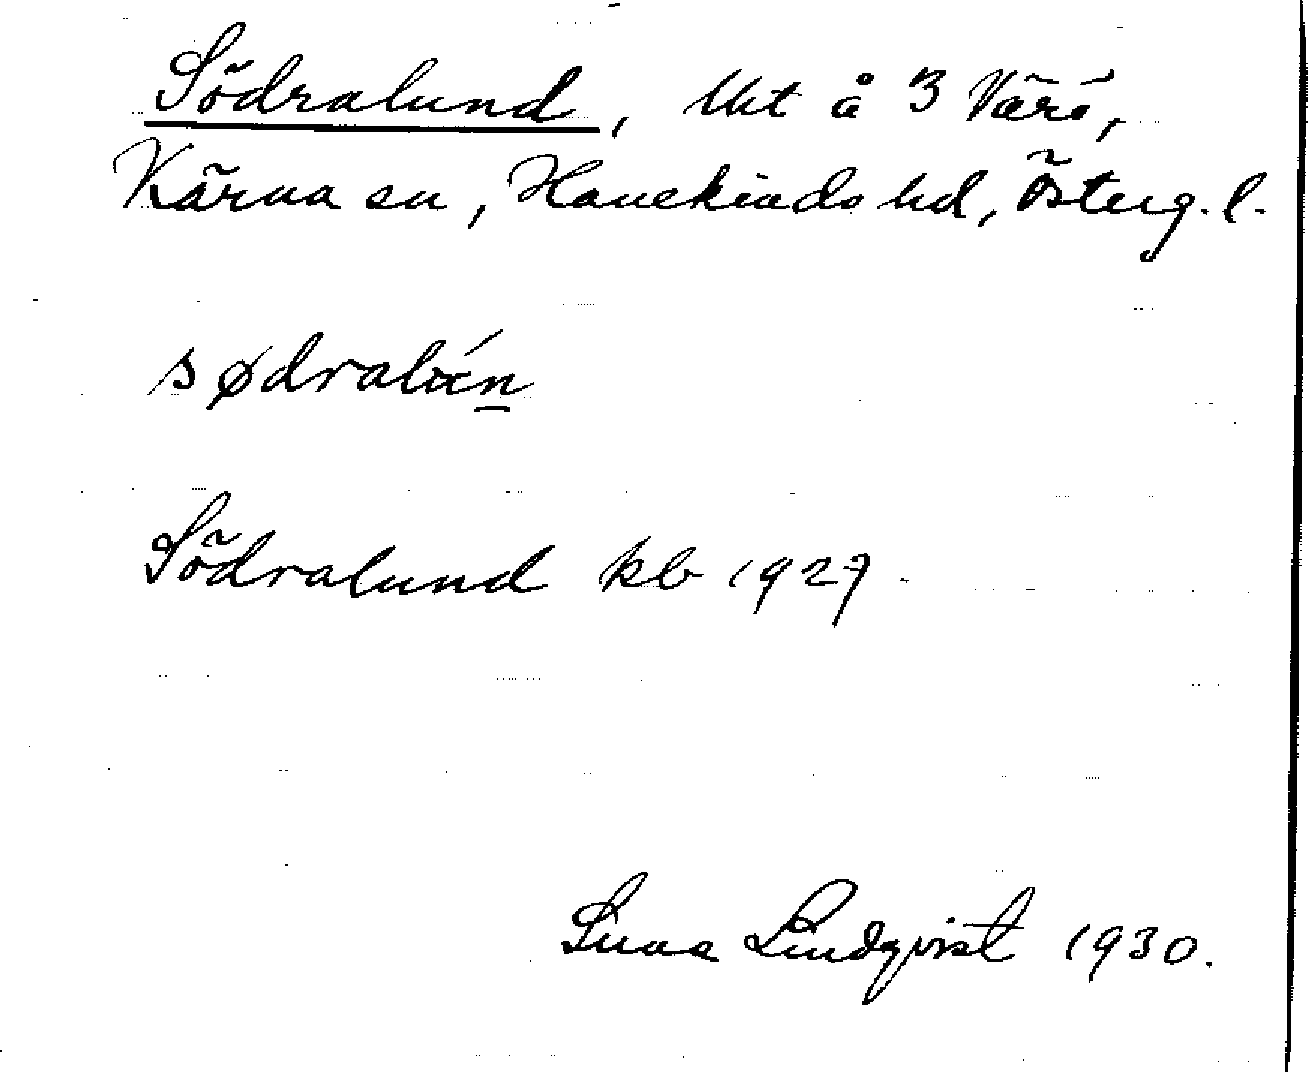 Södralund, lht å 3 Värö,
Kärna sn, Hanekinds hd, Österg. l.
sødralún
Södralund kb 1927.
Lindqvist 1930.